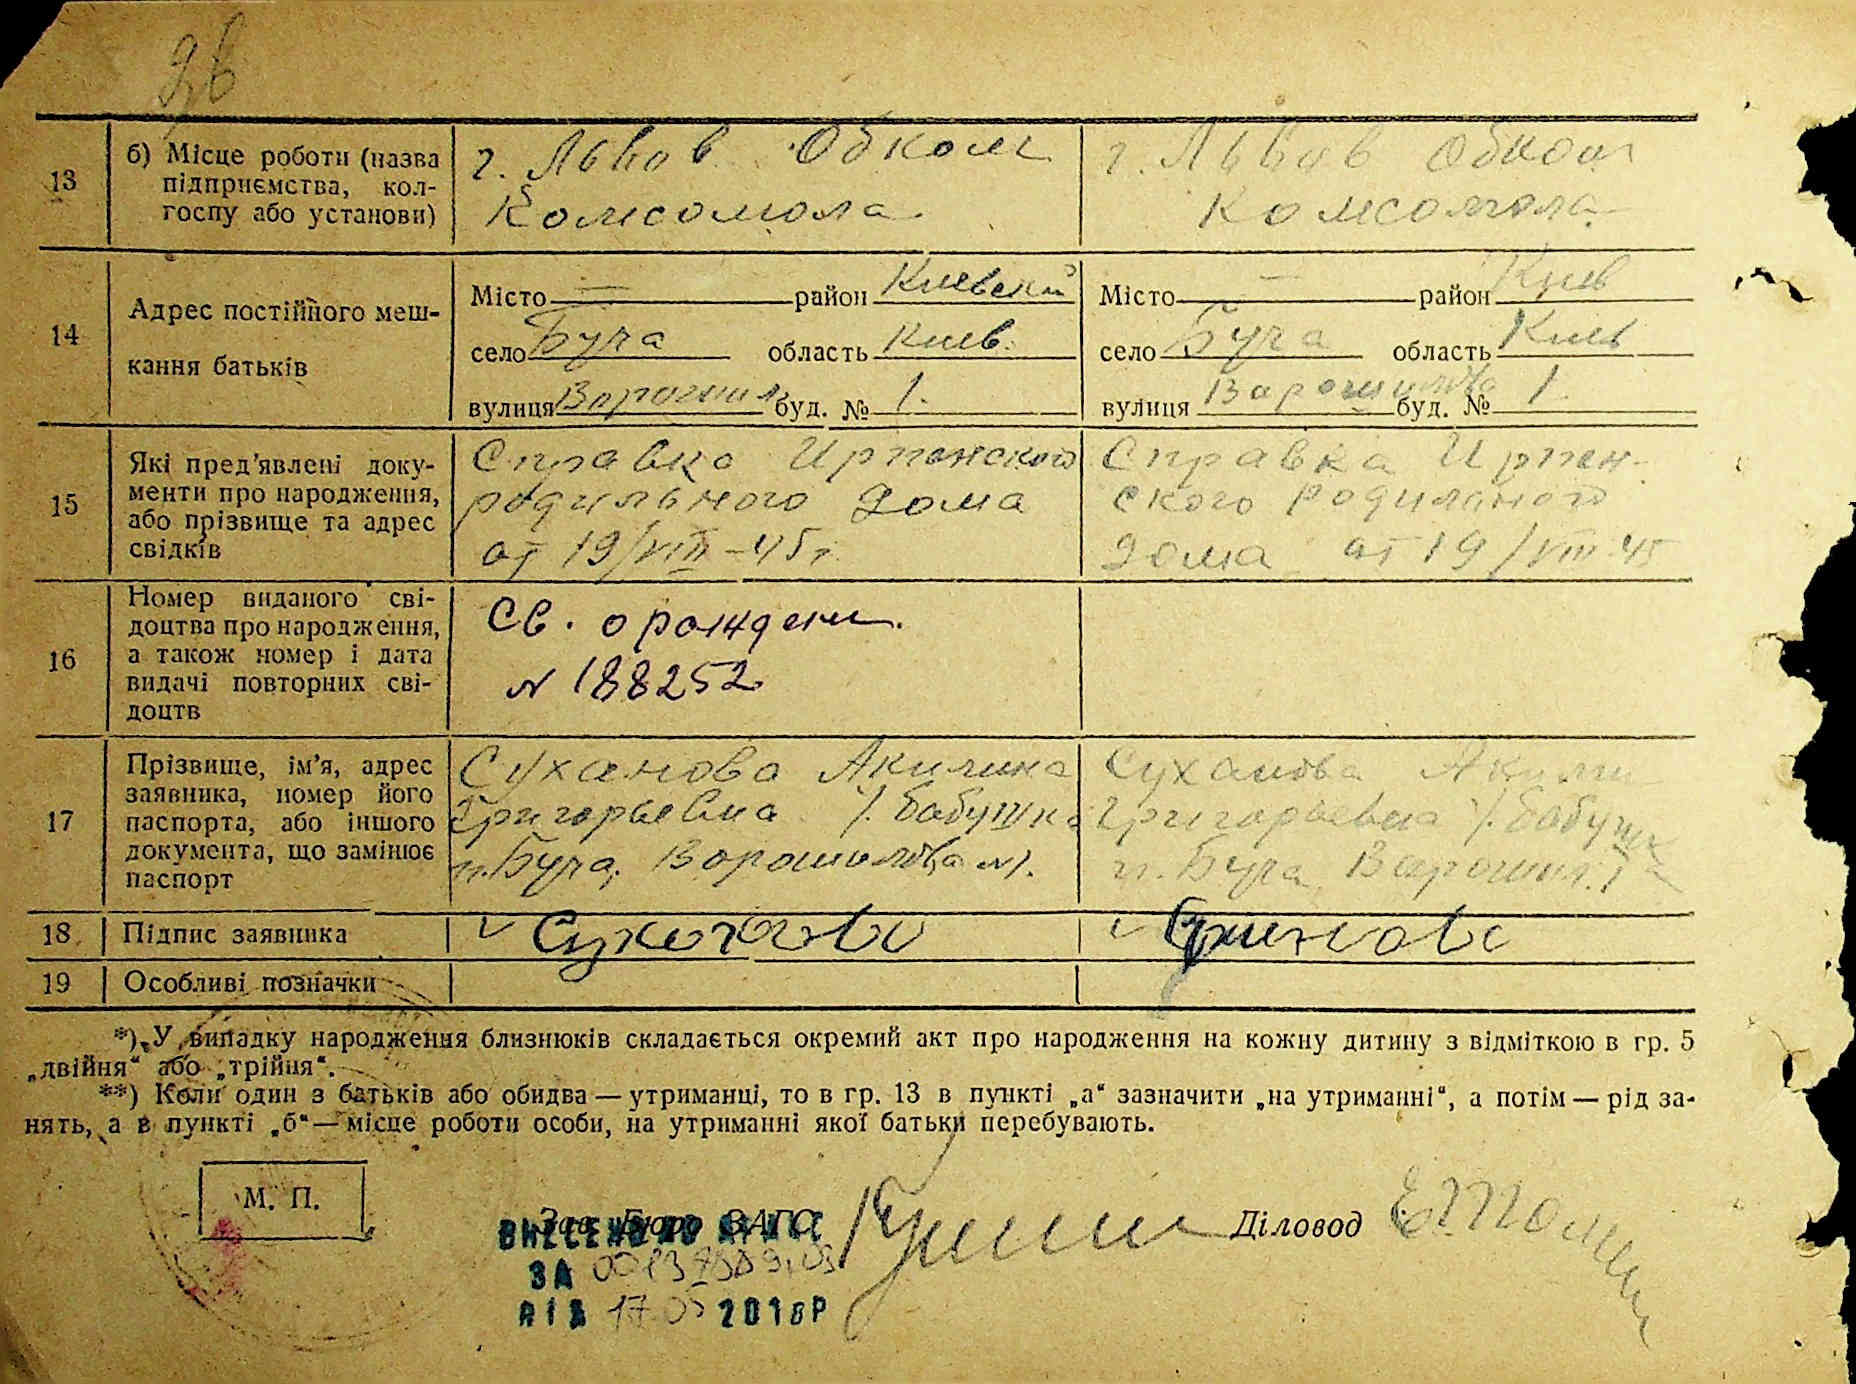 13 б) Місце роботи (назва підприємства, колгоспу або установи)
г. Львов Обком
Комсомола
г. Львов Обком
Комсомола
14 Адрес постійного мешкання батьків
Місто — район Киевский
село Буча область Киев.
вулиця Ворошил буд. № 1.
Місто — район Киев
село Буча область Киев
вулиця Ворошилова буд. № 1.
15 Які пред'явлені документи про народження, або прізвище та адрес свідків
Справка Ирпенского
родильного дома
от 19/VIII-45 г.
Справка Ирпен-
ского родильного
дома от 19/VIII-45
16 Номер виданого свідоцтва про народження, а також номер і дата видачі повторних свідоцтв
Св. о рождени.
N 188252
17 Прізвище, ім'я, адрес заявника, номер його паспорта, або іншого документа, що замінює паспорт
Суханова Акилина
Григорьевна /. бабушка
п. Буча, Ворошилова N 1.
Суханова Акили
Григорьевна /. бабушка
п. Буча, Ворошил. 1
18 Підпис заявника
19 Особливі позначки
*) У випадку народження близнюків складається окремий акт про народження на кожну дитину з відміткою в гр. 5
„двійня“ або „трійня“.
**) Коли один з батьків або обидва — утриманці, то в гр. 13 в пункті „а“ зазначити „на утриманні“, а потім — рід за-
нять, а в пункті „б“ — місце роботи особи, на утриманні якої батьки перебувають.
М. П.
Зав. Бюро ЗАГС
Діловод
ЗА
ВІД 17.05 2018Р